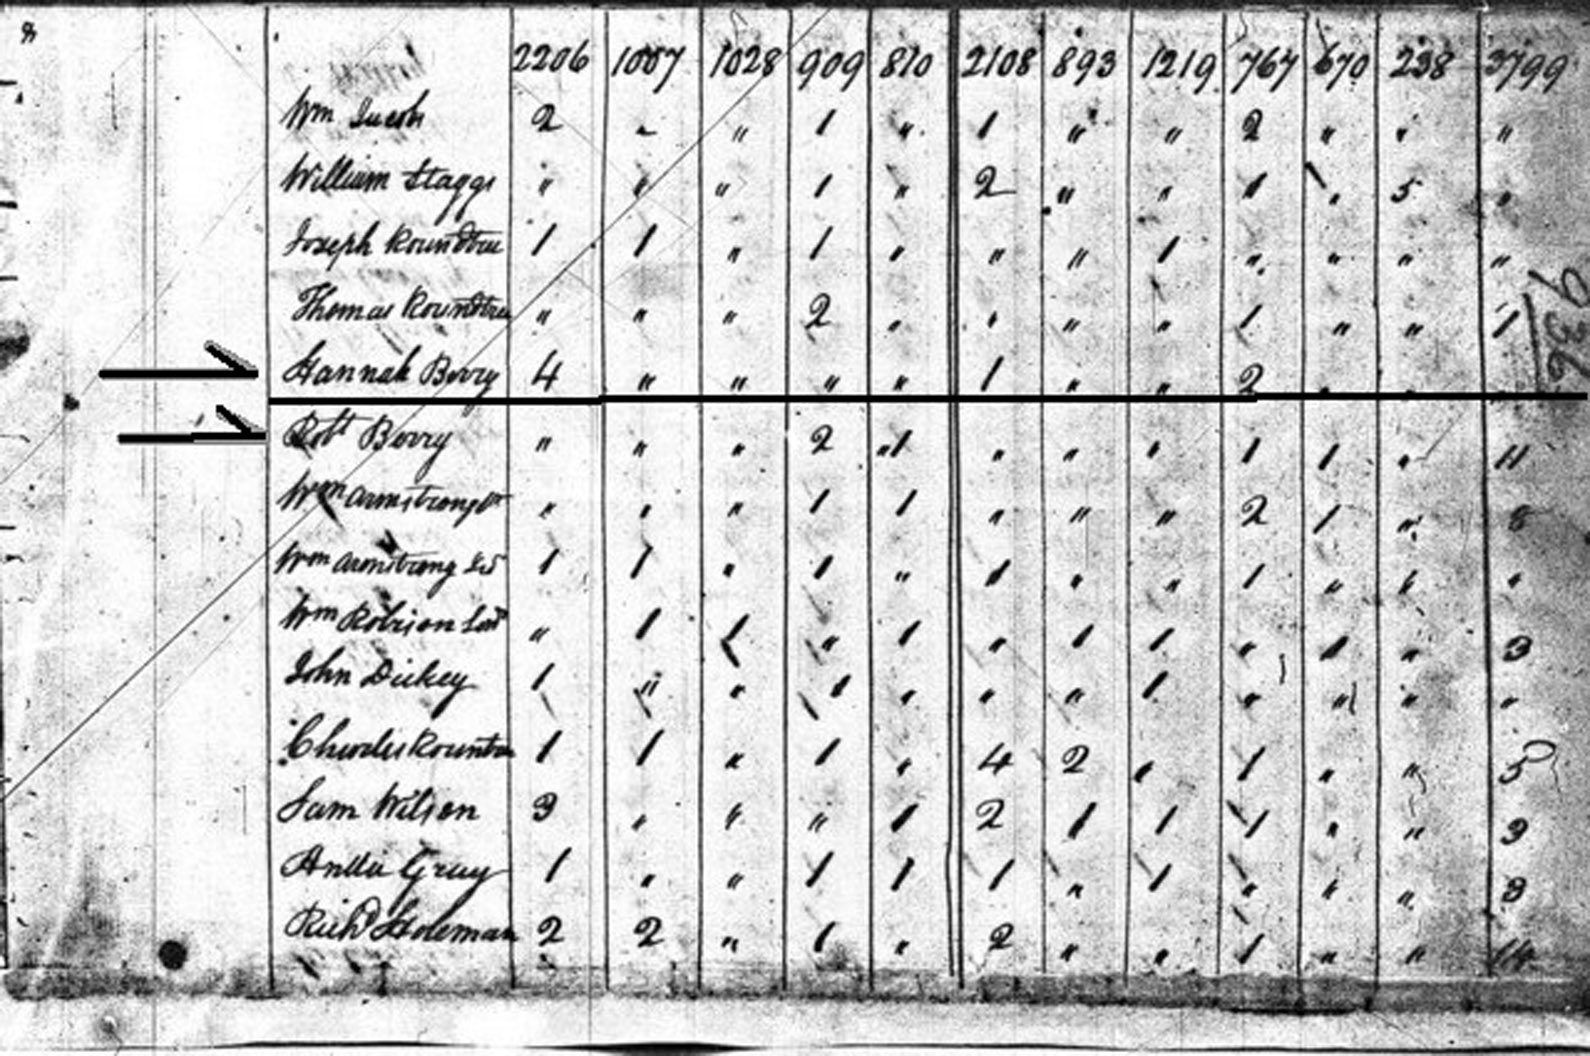 2206 1007 1028 909 810 2108 893 1219 767 670 238 3799
Wm Jacob 2 " " 1 " 1 " " 2 " " "
William Staggs " " " 1 " 2 " " 1 " 5 "
Joseph Roundtree 1 1 " 1 " " " 1 " " " "
Thomas Roundtree " " " 2 " " " 1 " " 1
Hannah Berry 4 " " " " 1 " " 2 " "
Robt Berry " " " 2 " 1 " " " 1 1 " 11
Wm Armstrong " " " 1 1 " " " 2 1 " 8
Wm Armstrong 1 1 " 1 " 1 " " 1 " 1 "
Wm Robison " 1 1 " 1 " 1 1 " 1 " 3
John Dickey 1 " " 1 " " " 1 " " " "
Charles Rountree 1 1 " 1 " 4 2 1 1 " " 5
Sam Wilson 3 " " " 1 2 1 1 1 " " 9
Gray 1 " " 1 1 1 " 1 " " " 3
Richd Holeman 2 2 " 1 " 2 " " 1 " " 14
936